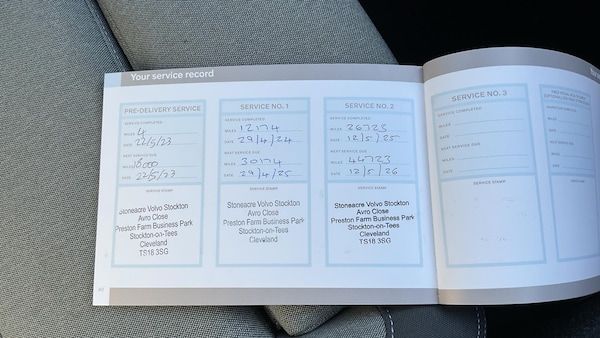 Your service record
PRE-DELIVERY SERVICE
SERVICE COMPLETED
MILES 4
DATE 22/5/23
NEXT SERVICE DUE
MILES 18000
DATE 22/5/23
SERVICE STAMP
Stoneacre Volvo Stockton
Avro Close
Preston Farm Business Park
Stockton-on-Tees
Cleveland
TS18 3SG
SERVICE NO. 1
SERVICE COMPLETED
MILES 12174
DATE 29/4/24
NEXT SERVICE DUE
MILES 30174
DATE 29/4/25
SERVICE STAMP
Stoneacre Volvo Stockton
Avro Close
Preston Farm Business Park
Stockton-on-Tees
Cleveland
SERVICE NO. 2
SERVICE COMPLETED
MILES 26723
DATE 12/5/25
NEXT SERVICE DUE
MILES 44723
DATE 12/5/26
SERVICE STAMP
Stoneacre Volvo Stockton
Avro Close
Preston Farm Business Park
Stockton-on-Tees
Cleveland
TS18 3SG
SERVICE NO. 3
SERVICE COMPLETED
MILES
DATE
NEXT SERVICE DUE
MILES
DATE
SERVICE STAMP